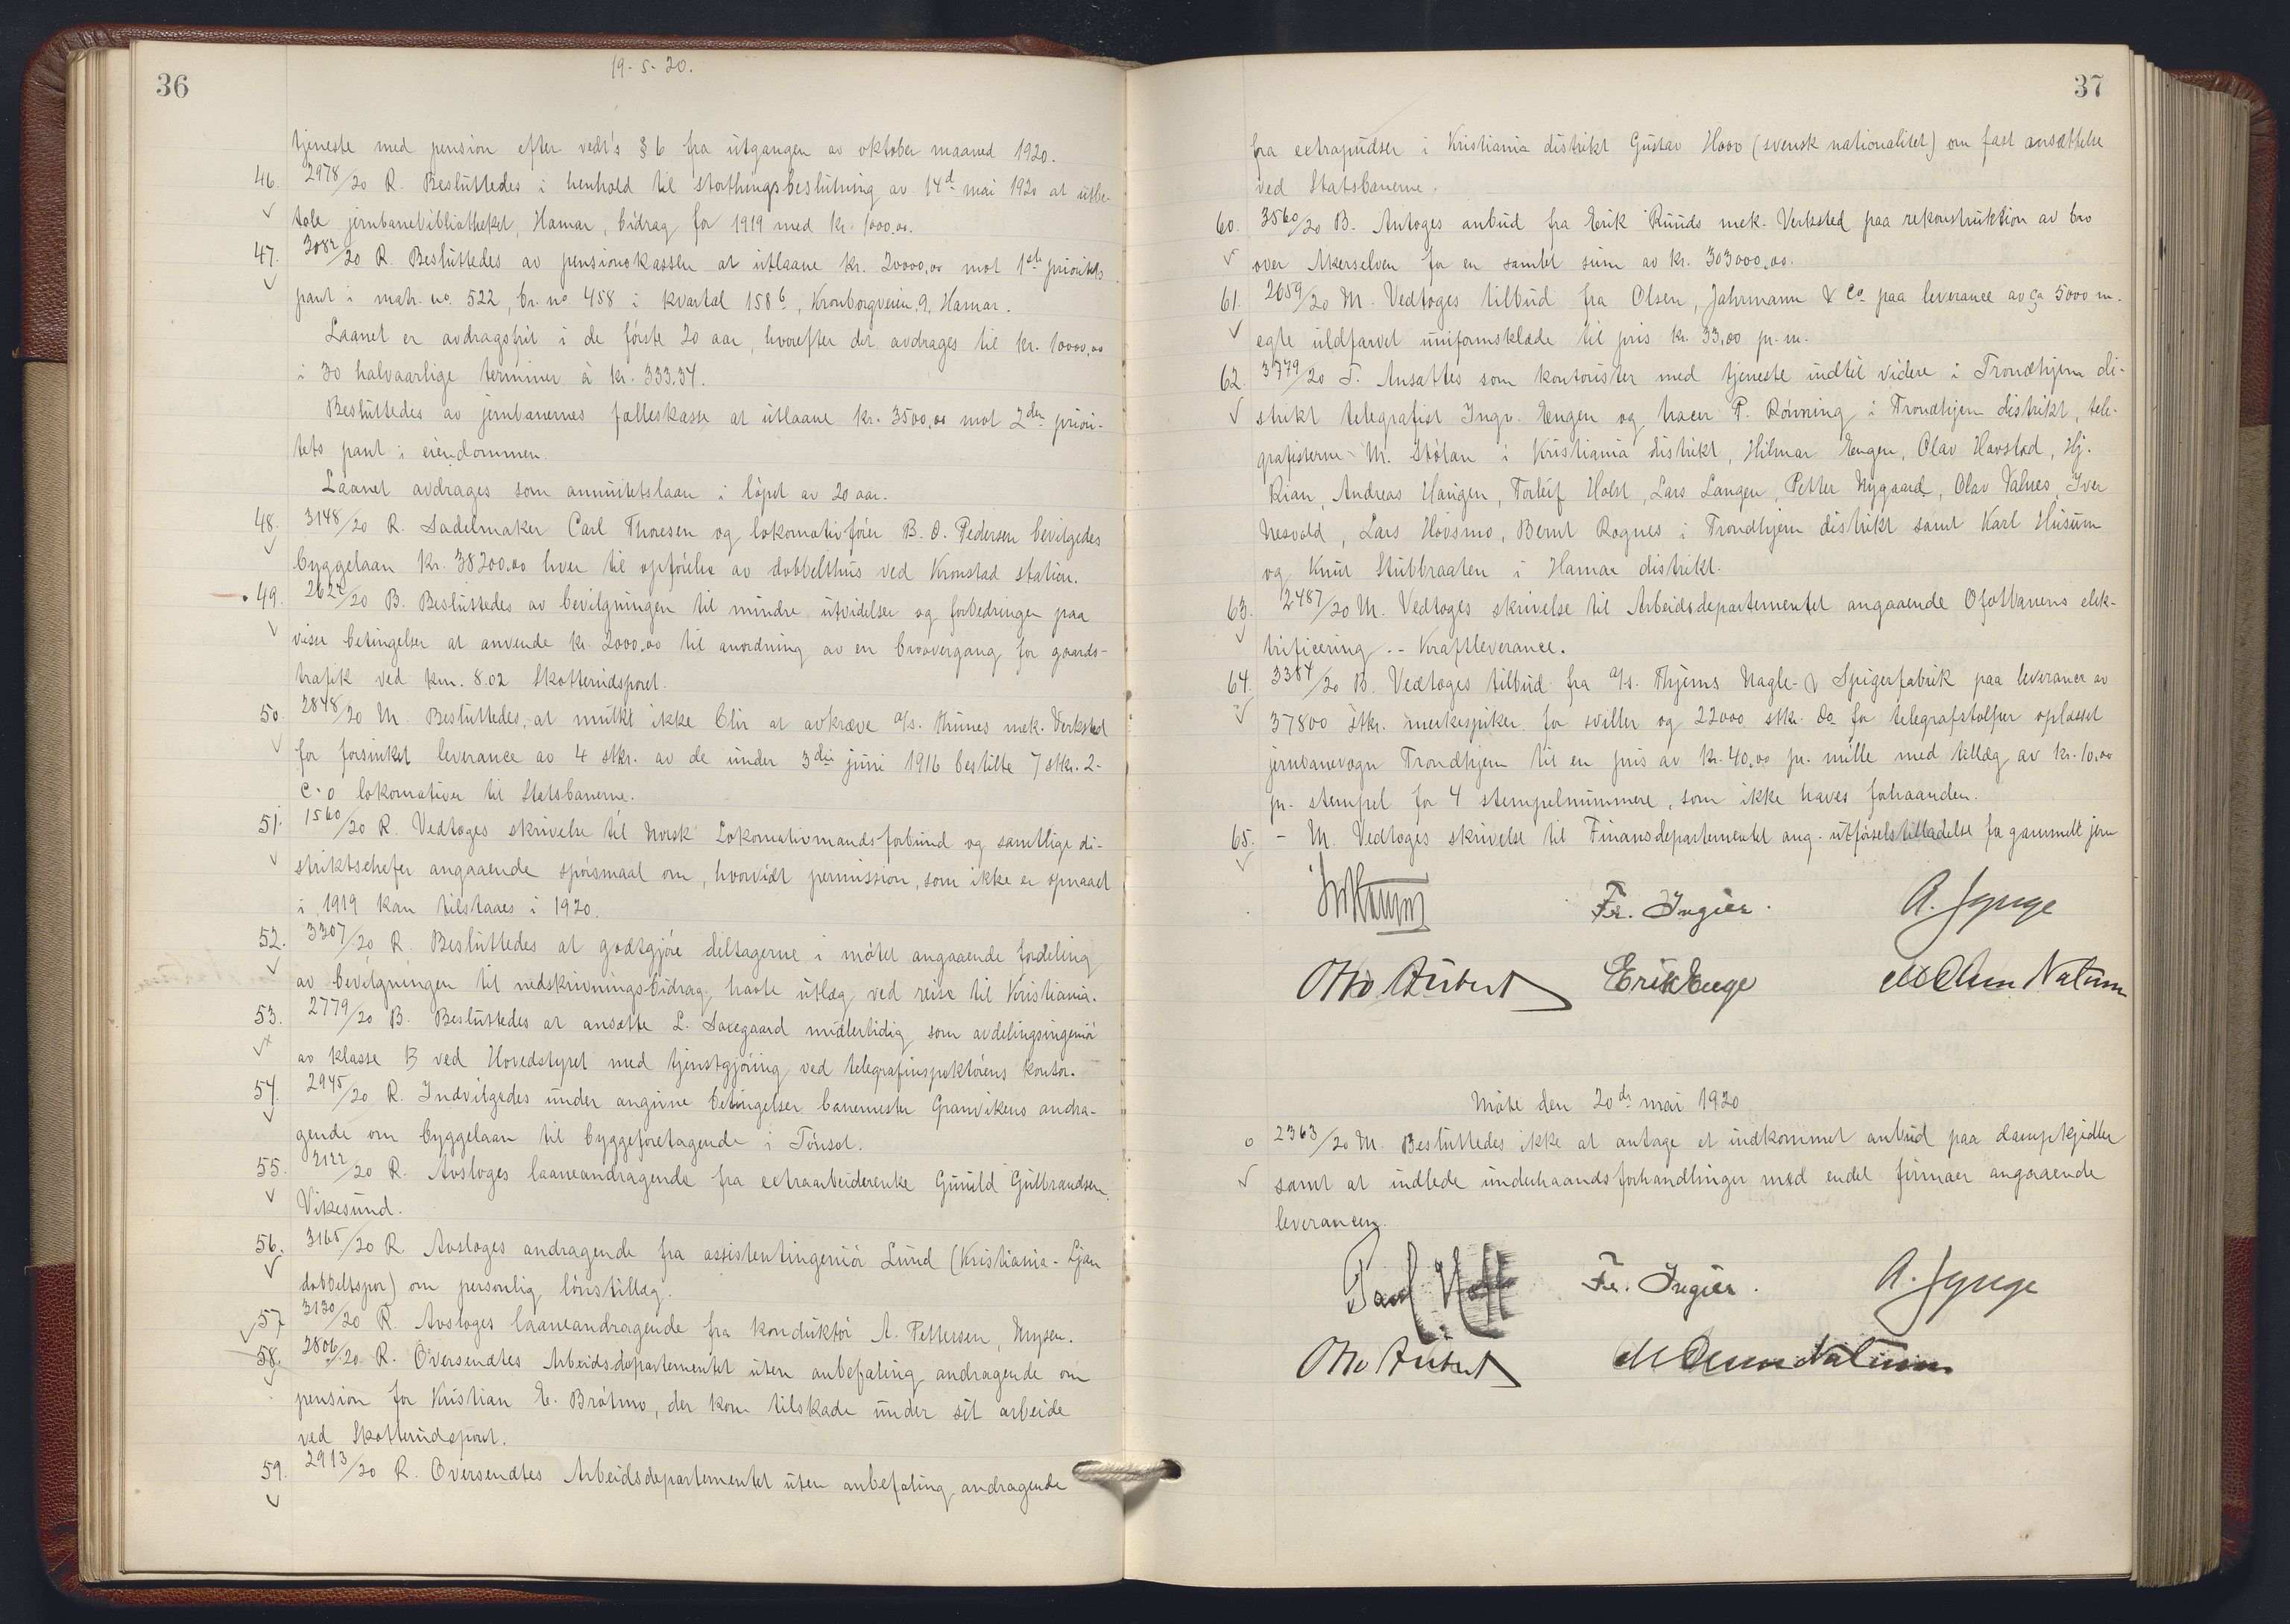 36
19-5-20.
tjeneste med pension efter vedt's § 6 fra utgangen av oktober maaned 1920.
46. 2978/20 R. Besluttedes i henhold til storthingsbeslutning av 14d mai 1920 at utbe-
tale jernbanebibliotheket, Hamar, bidrag for 1919 med kr. 1000.00.
47. 3082/20 R. Besluttedes av pensionskassen at utlaane kr. 20000,00 mot 1ste prioritets
pant i matr. no. 522, br. no 458 i kvartal 158 b, Kronborgveien 9, Hamar.
Laanet er avdragsfrit i de første 20 aar, hvorefter det avdrages til kr. 10000,00
i 30 halvaarlige terminer à kr. 333.34.
Besluttedes av jernbanernes fælleskasse at utlaane kr. 3500,00 mot 2den priori-
tets pant i eiendommen.
Laanet avdrages som annuitetslaan i løpet av 20 aar.
48. 3148/20 R. Sadelmaker Carl Thoresen og lokomotivfører B. O. Pedersen bevilgedes
byggelaan kr. 38200.00 hver til opførelse av dobbelthus ved Kronstad station.
49. 2622/20 B. Besluttedes av bevilgningen til mindre utvidelser og forbedringer paa
visse betingelser at anvende kr. 2000.00 til anordning av en broovergang for gaards-
trafik ved km. 8.02 Skotterudsporet.
50. 2848/20 M. Besluttedes, at mulkt ikke blir at avkræve a/s. Thunes mek. Verksted
for forsinket leverance av 4 stkr. av de under 3dje juni 1916 bestilte 7 stkr. 2-
C-0 lokomotiver til Statsbanerne.
51. 1560/20 R. Vedtoges skrivelse til Norsk Lokomotivmands-forbund og samtlige di-
striktschefer angaaende spørsmaal om, hvorvidt permission, som ikke er opnaaet
i 1919 kan tilstaaes i 1920.
52. 3307/20 R. Besluttedes at godtgjøre deltagerne i møtet angaaende fordeling
av bevilgningen til nedskrivningsbidrag havte utlæg ved reise til Kristiania.
53. 2779/20 B. Besluttedes at ansætte L. Saxegaard midlertidig som avdelingsingeniør
av klasse B ved Hovedstyret med tjenstgjøring ved telegrafinspektørens kontor.
54. 2945/20 R. Indvilgedes under angivne betingelser banemester Granvikens andra-
gende om byggelaan til byggeforetagende i Tønset.
55. 2122/20 R. Avsloges laaneandragende fra extraarbeiderenke Gunild Gulbrandsen,
Vikesund.
56. 3165/20 R. Avsloges andragende fra assistentingeniør Lund (Kristiania-Ljan
dobbeltspor) om personlig lønstillæg.
57 3130/20 R. Avsloges laaneandragende fra konduktør A. Pettersen, Mysen.
58. 2806/20 R. Oversendtes Arbeidsdepartementet uten anbefaling andragende om
pension for Kristian E. Bråtmo, der kom tilskade under sit arbeide
ved Skotterudsporet.
59. 2913/20 R. Oversendtes Arbeidsdepartementet uten anbefaling andragende
37
fra extrapudser i Kristiania distrikt Gustav Hoov (svensk nationalitet) om fast ansættelse
ved Statsbanerne.
60. 3560/20 B. Antoges anbud fra Erik Ruuds mek. Verksted paa rekonstruktion av bro
over Akerselven for en samlet sum av kr. 303000.00.
61. 2659/20 M. Vedtoges tilbud fra Olsen, Jahrmann & Co paa leverance av ca 5000 m.
egte uldfarvet uniformsklæde til pris kr. 33,00 pr. m.
62. 3779/20 T. Ansattes som kontorister med tjeneste indtil videre i Trondhjem di-
strikt telegrafist Ingv. Engen og P. Rønning i Trondhjem distrikt, tele-
grafisterne M. Stølan i Kristiania distrikt, Hilmar Engen, Olav Havstad, Hj.
Rian, Andreas Haugen, Torleif Holst, Lars Langen, Petter Nygaard, Olav Valnes, Iver
Nesvold, Lars Hovsmo, Bernt Rognes i Trondhjem distrikt samt Karl Husum
og Knut Stubbraaten i Hamar distrikt.
63. 2487/20 M. Vedtoges skrivelse til Arbeidsdepartementet angaaende Ofotbanens elek-
trificering. - Kraftleverance.
64. 3384/20 B. Vedtoges tilbud fra a/s. Thjems Nagle- & Spigerfabrik paa leverance av
37800 stkr. merkespiker for sviller og 22000 stk. do for telegrafstolper oplasset
jernbanevogn Trondhjem til en pris av kr. 40,00 pr. mille med tillæg av kr. 10,00
pr. stempel for 4 stempelnummere, som ikke haves forhaanden.
65. - M. Vedtoges skrivelse til Finansdepartementet ang. utførselstilladelse for gammelt jern
Fr. Ingier.
Otto Aubert
Møte den 20de mai 1920
2363/20 M. Besluttedes ikke at antage et indkommet anbud paa dampkjedler
samt at indlede underhaandsforhandlinger med endel firmaer angaaende
leverancen.
Fr. Ingier.
Otto Aubert